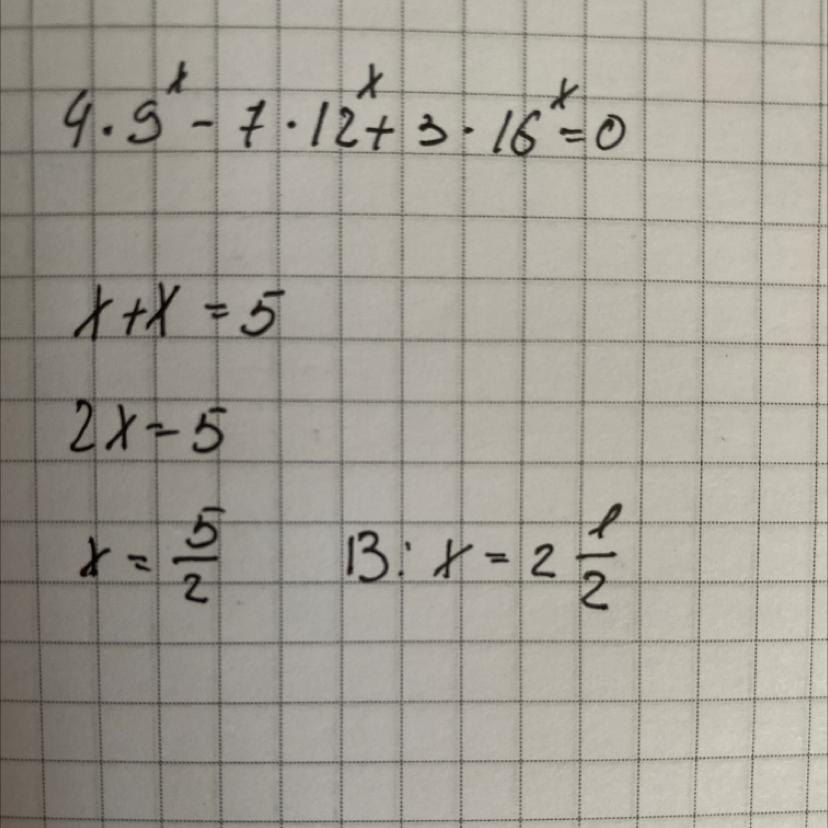 4 · 9ˣ - 7 · 12ˣ + 3 · 16ˣ = 0
x + x = 5
2x = 5
x = 5/2 B: x = 2 1/2